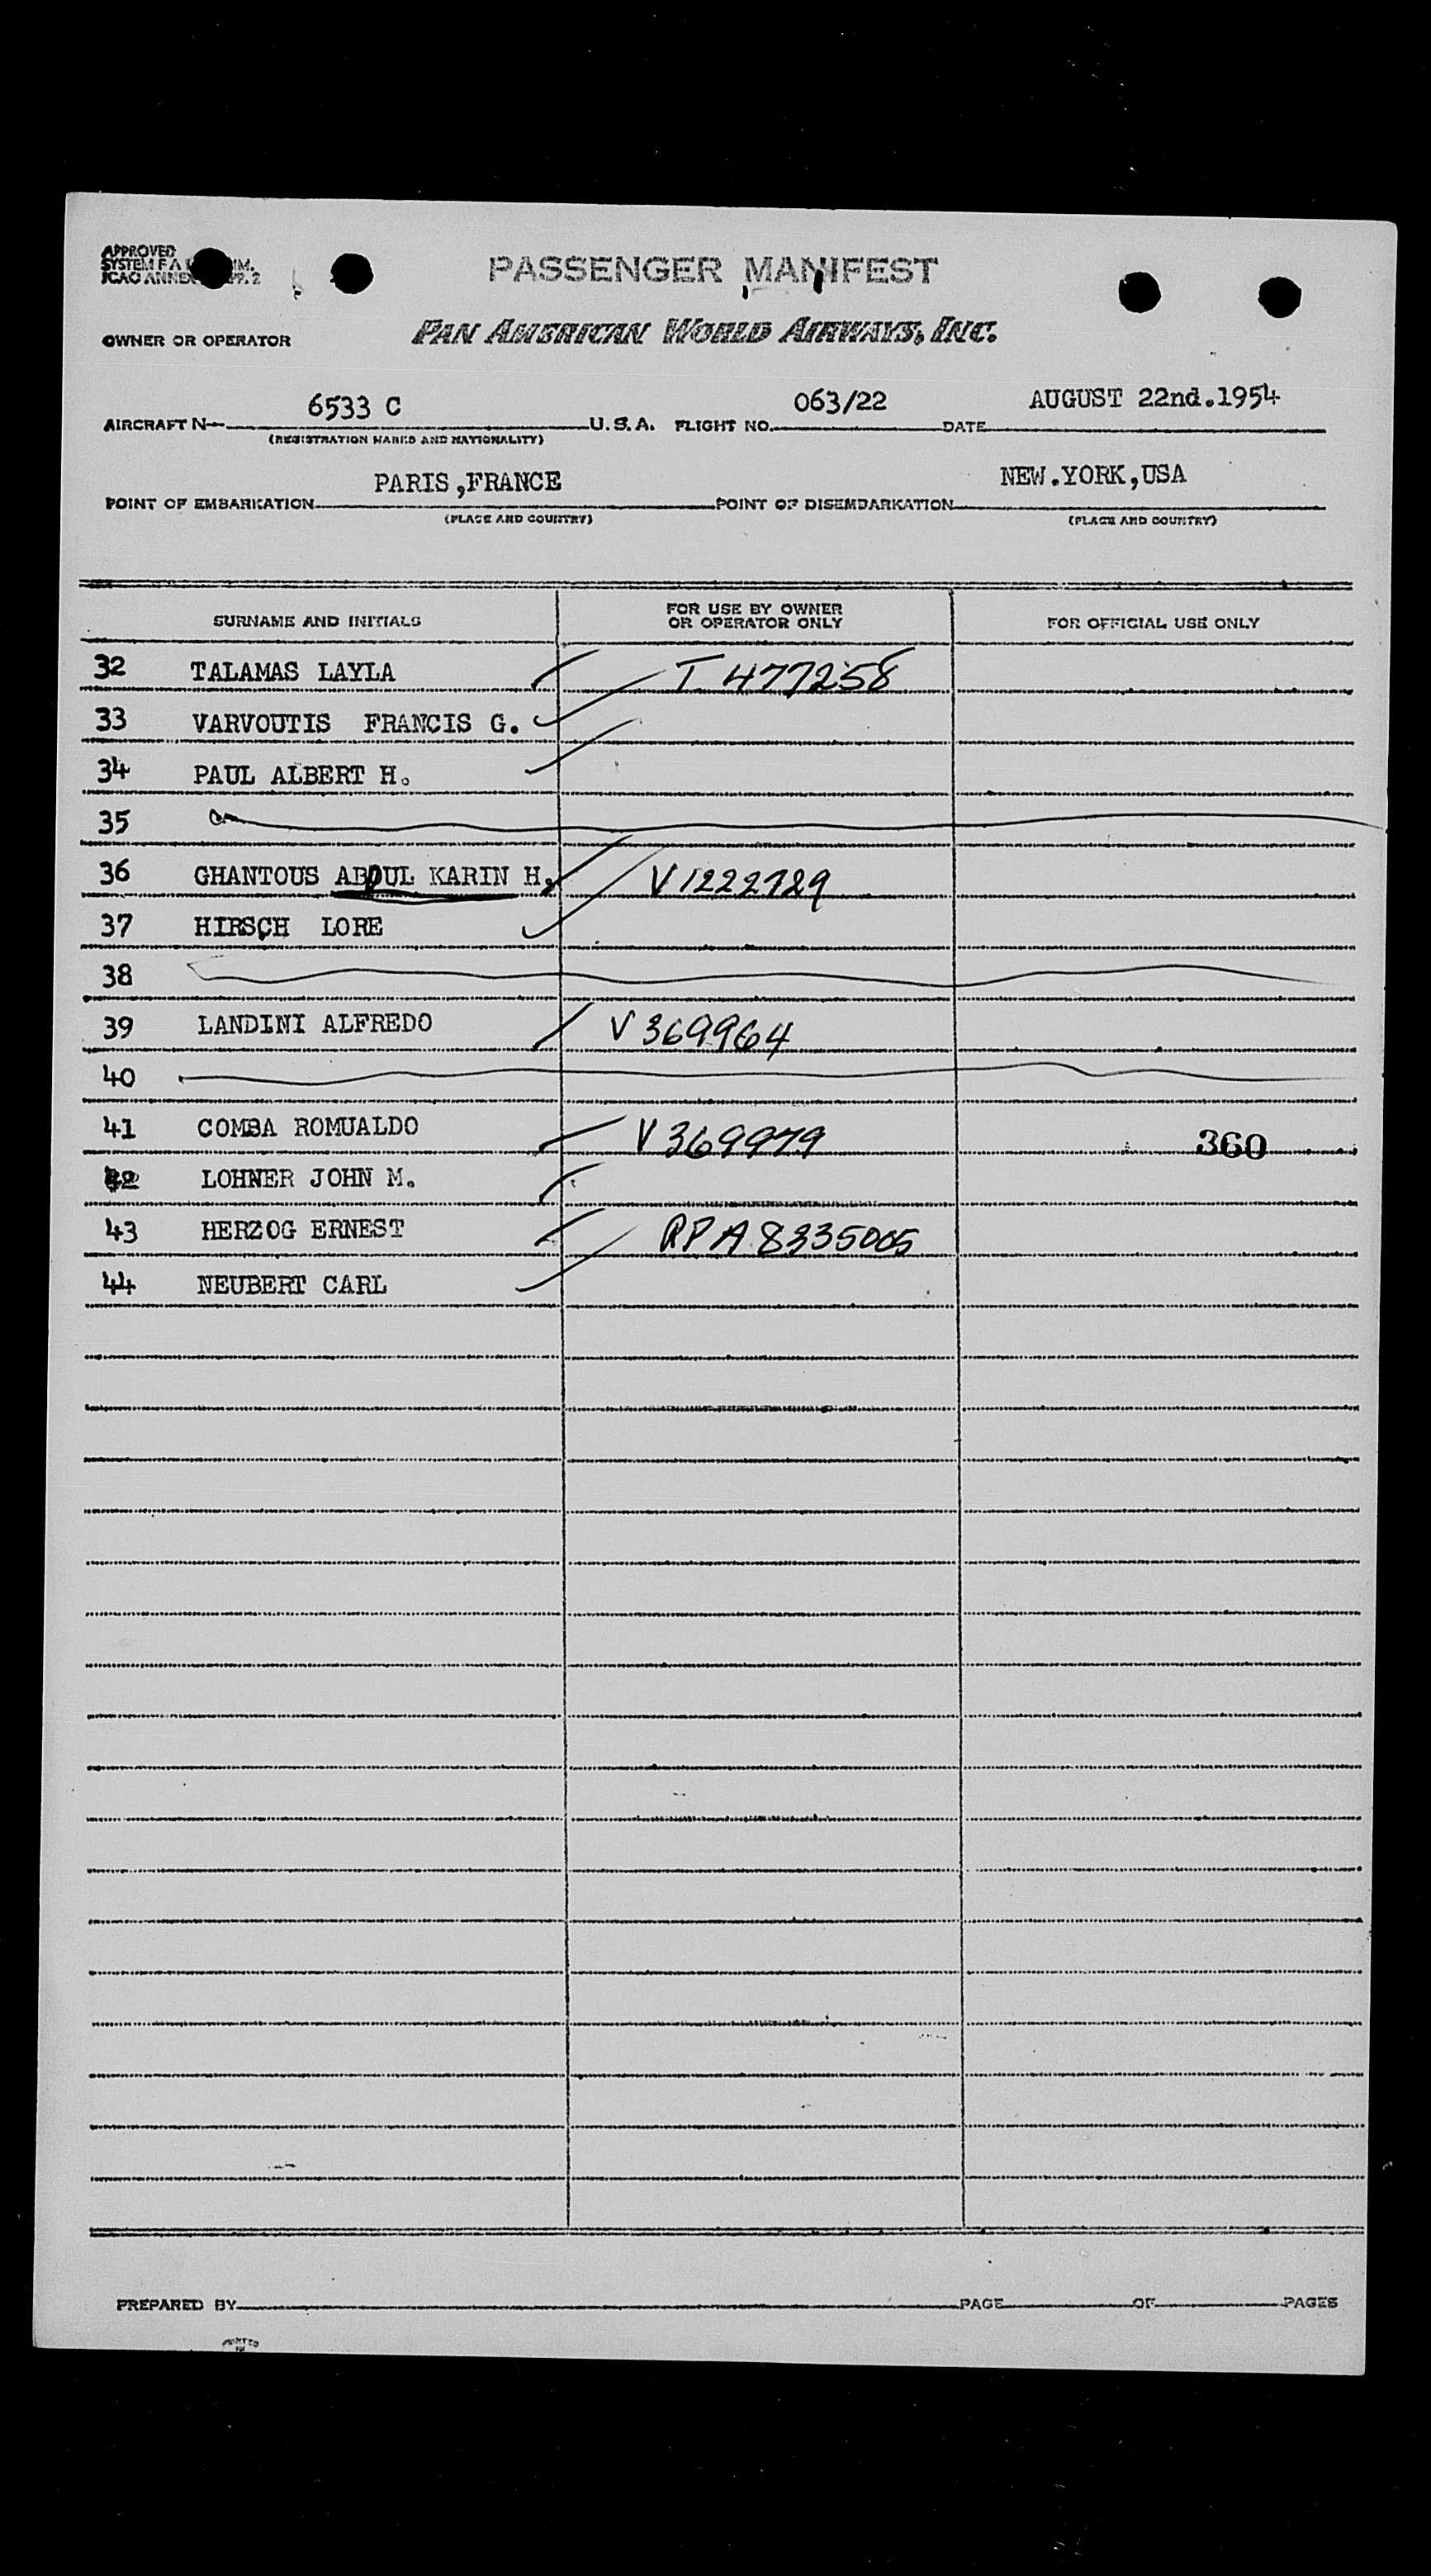 APPROVED
PASSENGER MANIFEST
OWNER OR OPERATOR PAN AMERICAN WORLD AIRWAYS, INC.
AIRCRAFT N 6533 C U.S.A. FLIGHT NO. 063/22 DATE AUGUST 22nd.1954
(REGISTRATION MARKS AND NATIONALITY)
POINT OF EMBARKATION PARIS,FRANCE POINT OF DISEMBARKATION NEW.YORK,USA
(PLACE AND COUNTRY) (PLACE AND COUNTRY)
SURNAME AND INITIALS FOR USE BY OWNER OR OPERATOR ONLY FOR OFFICIAL USE ONLY
32 TALAMAS LAYLA T 477258
33 VARVOUTIS FRANCIS G.
34 PAUL ALBERT H.
35
36 GHANTOUS ABDUL KARIN H. V 1222729
37 HIRSCH LORE
38
39 LANDINI ALFREDO V 369964
40
41 COMBA ROMUALDO V 369979 360
42 LOHNER JOHN M.
43 HERZOG ERNEST RPA 8335005
44 NEUBERT CARL
PREPARED BY PAGE OF PAGES
PRINTED